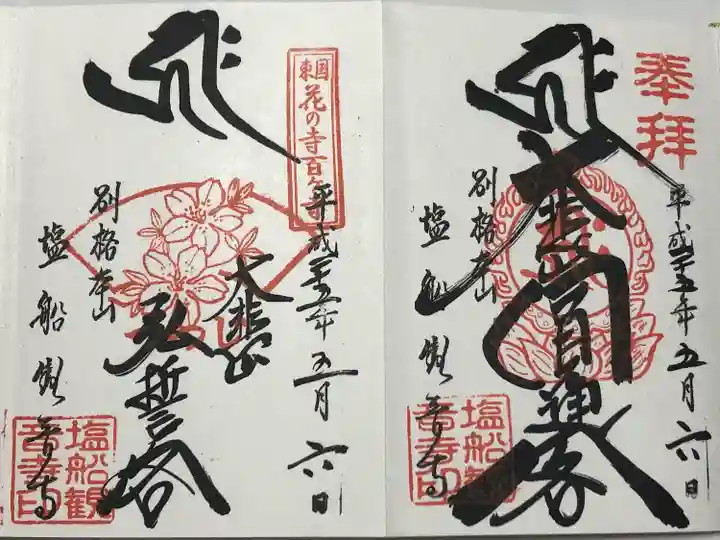 奉拝
平成二五年五月六日
大悲円通閣
別格本山
塩船観音寺
塩船観音寺印
東国花の寺百ヶ寺
平成二五年五月六日
大悲
弘誓塔
別格本山
塩船観音寺
塩船観音寺印